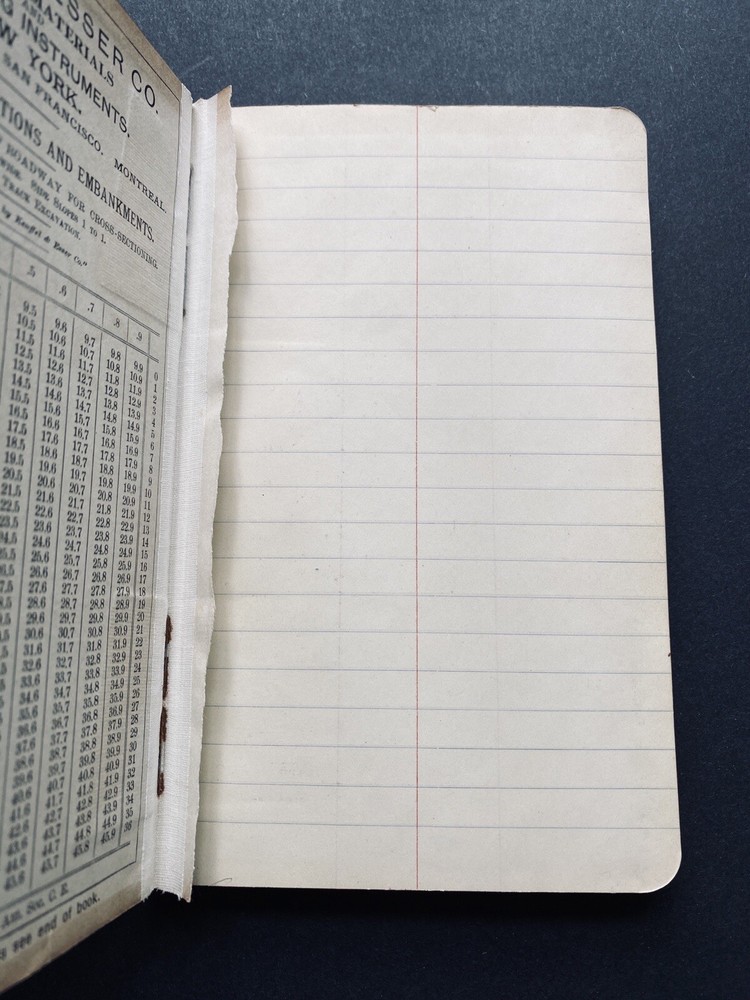 ESSER CO.
AND
MATERIALS
G INSTRUMENTS.
W YORK.
SAN FRANCISCO. MONTREAL.
TIONS AND EMBANKMENTS.
ROADWAY FOR CROSS-SECTIONING.
SIDE SLOPES 1 TO 1.
TRACK EXCAVATION.
by Keuffel & Esser Co."
.5 .6 .7 .8 .9
9.5 9.6 9.7 9.8 9.9 0
10.5 10.6 10.7 10.8 10.9 1
11.5 11.6 11.7 11.8 11.9 2
12.5 12.6 12.7 12.8 12.9 3
13.5 13.6 13.7 13.8 13.9 4
14.5 14.6 14.7 14.8 14.9 5
15.5 15.6 15.7 15.8 15.9 6
16.5 16.6 16.7 16.8 16.9 7
17.5 17.6 17.7 17.8 17.9 8
18.5 18.6 18.7 18.8 18.9 9
19.5 19.6 19.7 19.8 19.9 10
20.5 20.6 20.7 20.8 20.9 11
21.5 21.6 21.7 21.8 21.9 12
22.5 22.6 22.7 22.8 22.9 13
23.5 23.6 23.7 23.8 23.9 14
24.5 24.6 24.7 24.8 24.9 15
25.6 25.7 25.8 25.9 16
26.6 26.7 26.8 26.9 17
27.6 27.7 27.8 27.9 18
28.6 28.7 28.8 28.9 19
29.6 29.7 29.8 29.9 20
30.6 30.7 30.8 30.9 21
31.6 31.7 31.8 31.9 22
32.6 32.7 32.8 32.9 23
33.6 33.7 33.8 33.9 24
34.6 34.7 34.8 34.9 25
35.6 35.7 35.8 35.9 26
36.6 36.7 36.8 36.9 27
37.6 37.7 37.8 37.9 28
38.6 38.7 38.8 38.9 29
39.6 39.7 39.8 39.9 30
40.6 40.7 40.8 40.9 31
41.6 41.7 41.8 41.9 32
42.6 42.7 42.8 42.9 33
43.6 43.7 43.8 43.9 34
44.6 44.7 44.8 44.9 35
45.6 45.7 45.8 45.9 36
Am. Soc. C. E.
see end of book.